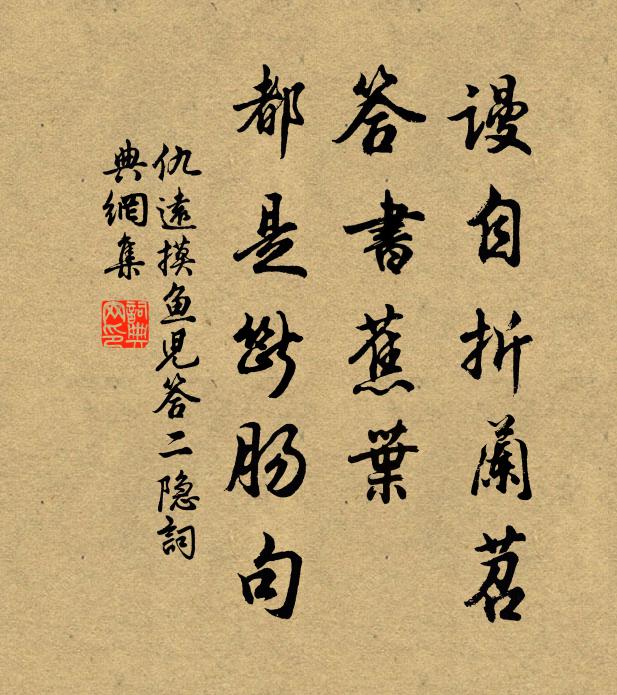 谩自折蘭苕
答書蕉葉
都是斷肠句
仇遠摸鱼兒答二隐詞
典網集
詞典
网印